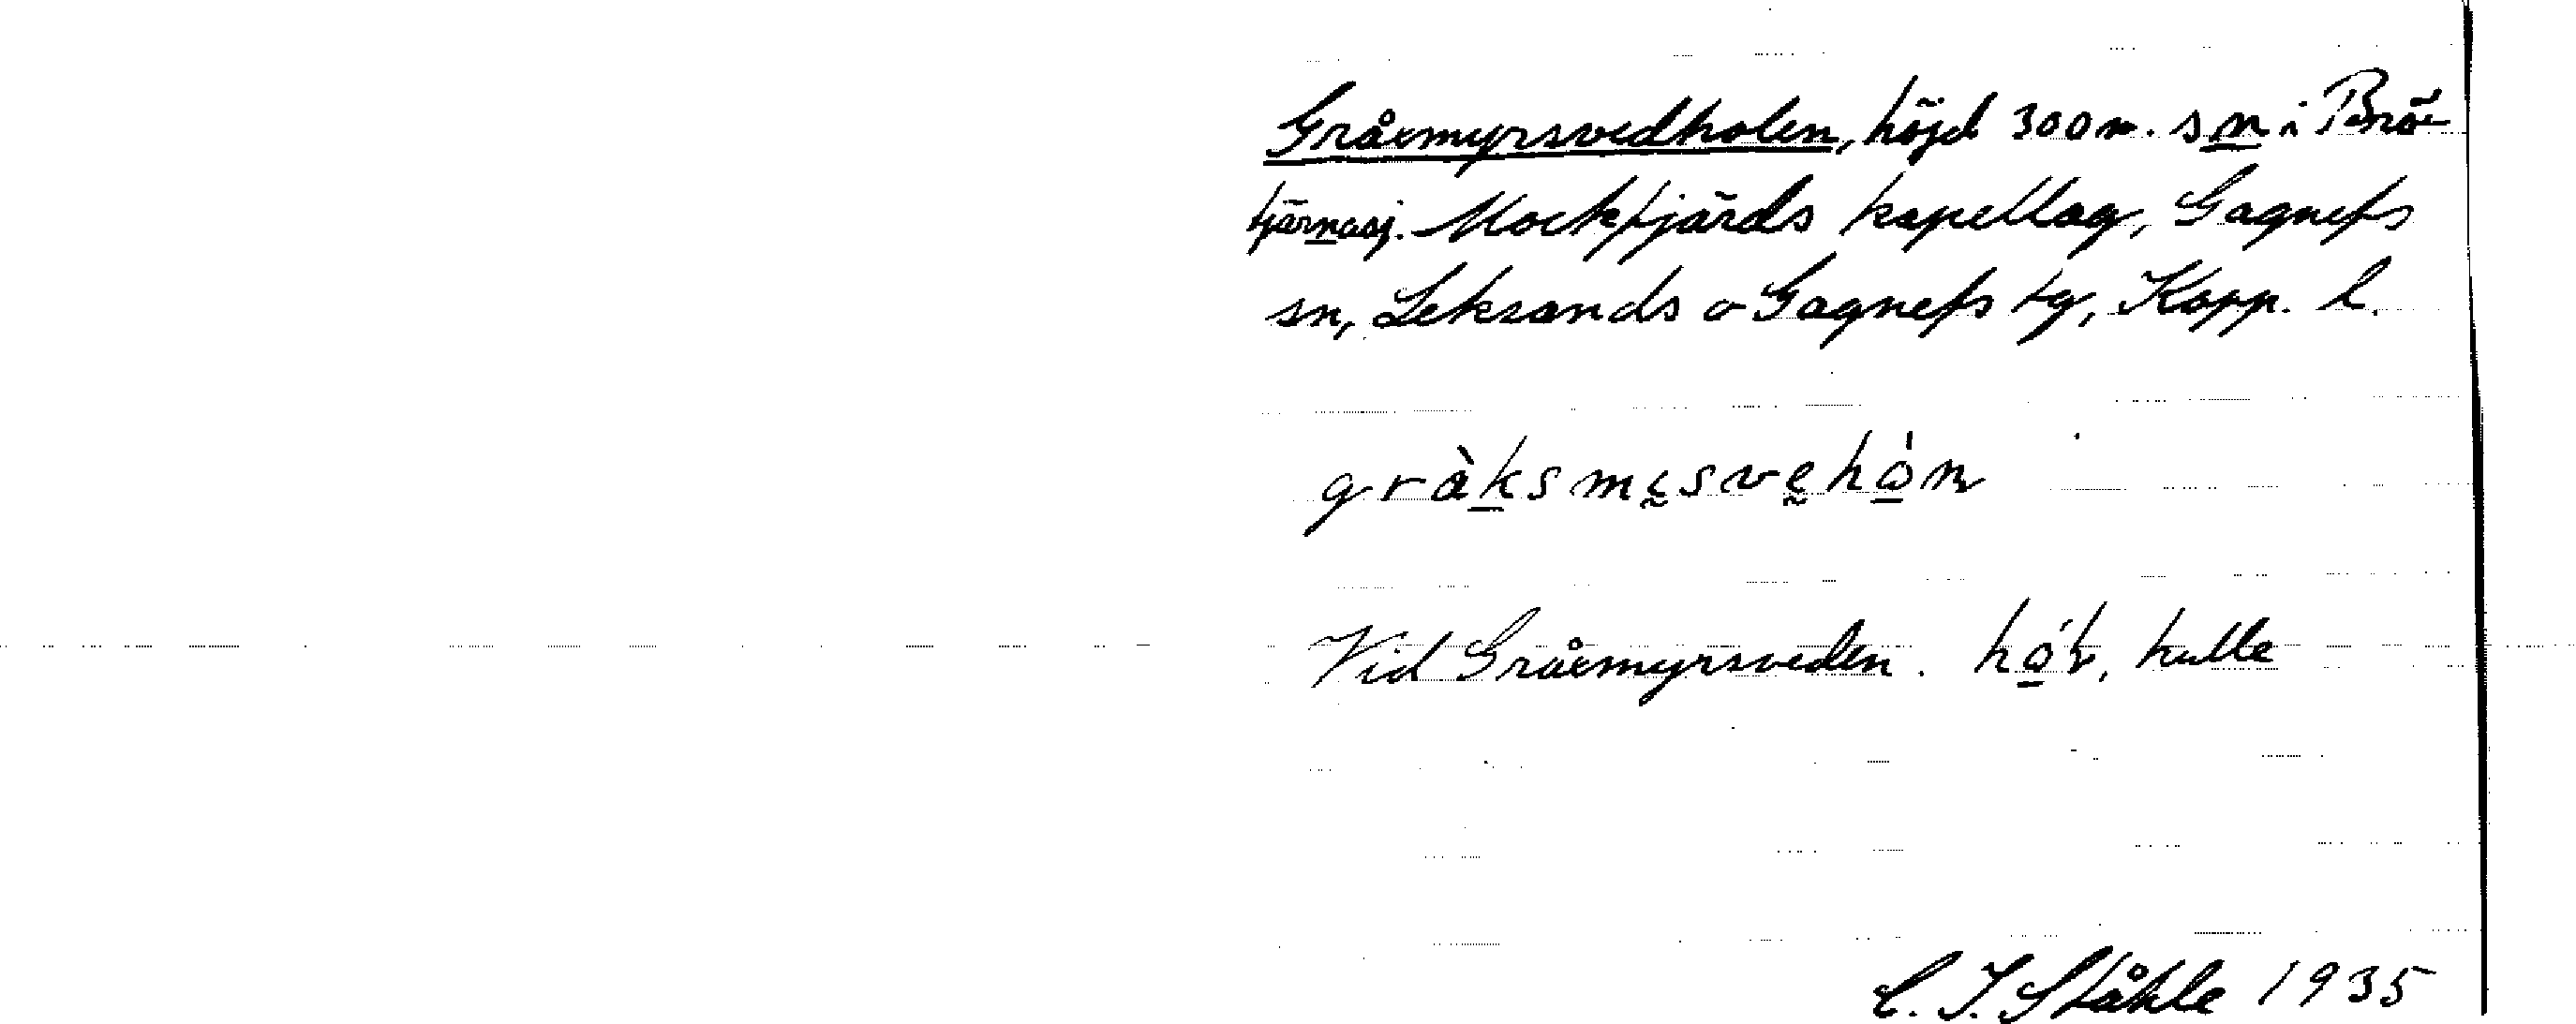 Gråxmyrsvedholen, höjd 300 m. s n i Brö-
tjärnasj. Mockfjärds kapellag, Gagnefs
sn, Leksands o Gagnefs tg, Kopp. l.
gràksmęsvęhòn
Vid Gråxmyrsveden. hól, kulle
C. I. Ståhle 1935